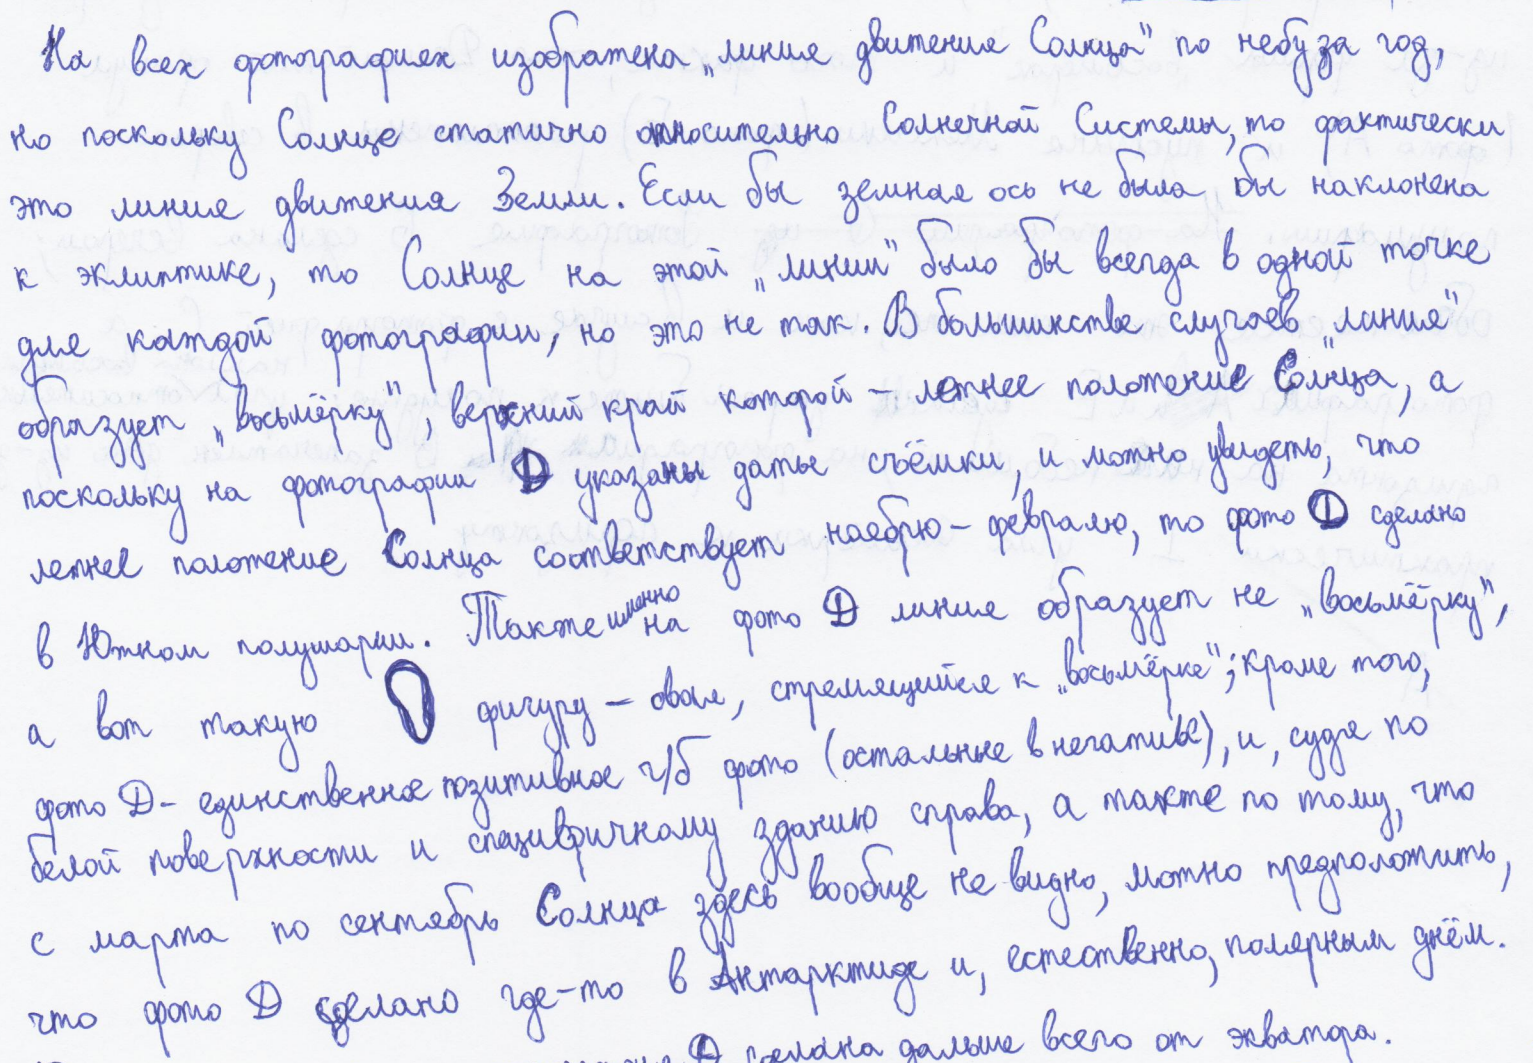 На всех фотографиях изображена „линия движения Солнца" по небу за год,
но поскольку Солнце статично относительно Солнечной Системы, то фактически
это линия движения Земли. Если бы земная ось не была бы наклонена
к эклиптике, то Солнце на этой „линии" было бы всегда в одной точке
для каждой фотографии, но это не так. В большинстве случаев „линия"
образует „восьмёрку", верхний край которой – летнее положение Солнца, а
поскольку на фотографии D указаны даты съёмки, и можно увидеть, что
летнее положение Солнца соответствует ноябрю – февралю, то фото D сделано
в Южном полушарии. Также именно на фото D линия образует не „восьмёрку",
а вот такую фигуру – овал, стремящийся к „восьмёрке"; кроме того,
фото D – единственное позитивное ч/б фото (остальные в негативе), и, судя по
белой поверхности и специфичному зданию справа, а также по тому, что
с марта по сентябрь Солнца здесь вообще не видно, можно предположить,
что фото D сделано где-то в Антарктиде и, естественно, полярным днём.
D сделана дальше всего от экватора.